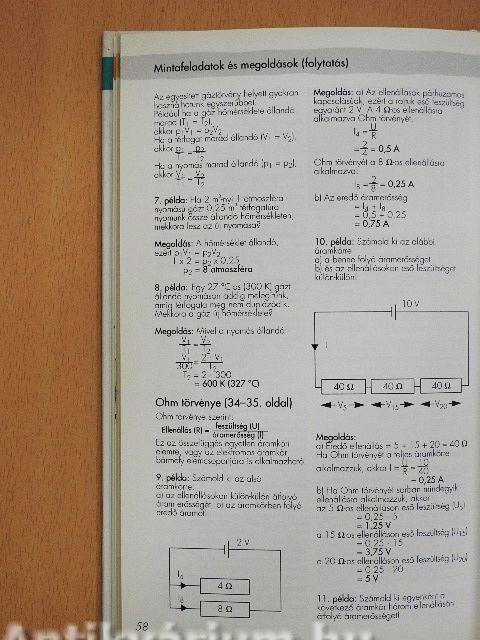 Mintafeladatok és megoldások (folytatás)
Az egyesített gáztörvény helyett gyakran
használhatunk egyszerűbbet.
Például ha a gáz hőmérséklete állandó
marad (T₁ = T₂),
akkor p₁V₁ = p₂V₂
Ha a térfogat marad állandó (V₁ = V₂),
akkor p₁/T₁ = p₂/T₂
Ha a nyomás marad állandó (p₁ = p₂),
akkor V₁/T₁ = V₂/T₂
7. példa: Ha 2 m³-nyi 1 atmoszféra
nyomású gázt 0,25 m³ térfogatúra
nyomunk össze állandó hőmérsékleten,
mekkora lesz az új nyomása?
Megoldás: A hőmérséklet állandó,
ezért p₁V₁ = p₂V₂
1 x 2 = p₂ x 0,25
p₂ = 8 atmoszféra
8. példa: Egy 27 °C-os (300 K) gázt
állandó nyomáson addig melegítünk,
amíg térfogata meg nem duplázódik.
Mekkora a gáz új hőmérséklete?
Megoldás: Mivel a nyomás állandó:
V₁/T₁ = V₂/T₂
V₁/300 = 2 · V₁/T₂
T₂ = 2 · 300
= 600 K (327 °C)
Ohm törvénye (34–35. oldal)
Ohm törvénye szerint:
Ellenállás (R) = feszültség (U)/áramerősség (I)
Ez az összefüggés egyetlen áramköri
elemre, vagy az elektromos áramkör
bármely elemcsoportjára is alkalmazható.
9. példa: Számold ki az alsó
áramkörre:
a) az ellenállásokon különkülön átfolyó
áram erősségét, b) az áramkörben folyó
eredő áramot!
2 V
I₄
4 Ω
I₈
8 Ω
58
Megoldás: a) Az ellenállások párhuzamos
kapcsolásúak, ezért a rájuk eső feszültség
egyaránt 2 V. A 4 Ω-os ellenállásra
alkalmazva Ohm törvényét:
I₄ = U/R
= 2/4 = 0,5 A
Ohm törvényét a 8 Ω-os ellenállásra
alkalmazva:
I₈ = 2/8 = 0,25 A
b) Az eredő áramerősség
= I₄ + I₈
= 0,5 + 0,25
= 0,75 A
10. példa: Számold ki az alábbi
áramkörre
a) a benne folyó áramerősséget
b) és az ellenállásokon eső feszültséget
külön-külön!
10 V
I
40 Ω
40 Ω
40 Ω
V₅
V₁₅
V₂₀
Megoldás:
a) Eredő ellenállás = 5 + 15 + 20 = 40 Ω
Ha Ohm törvényét a teljes áramkörre
alkalmazzuk, akkor I = U/R = 10/40
= 0,25 A
b) Ha Ohm törvényét sorban mindegyik
ellenállásra alkalmazzuk, akkor
az 5 Ω-os ellenálláson eső feszültség (U₅)
= 0,25 · 5
= 1,25 V
a 15 Ω-os ellenálláson eső feszültség (U₁₅)
= 0,25 · 15
= 3,75 V
a 20 Ω-os ellenálláson eső feszültség (U₂₀)
= 0,25 · 20
= 5 V
11. példa: Számold ki egyenként a
következő áramkör három ellenállásán
átfolyó áramerősséget!
Antikvárium.hu